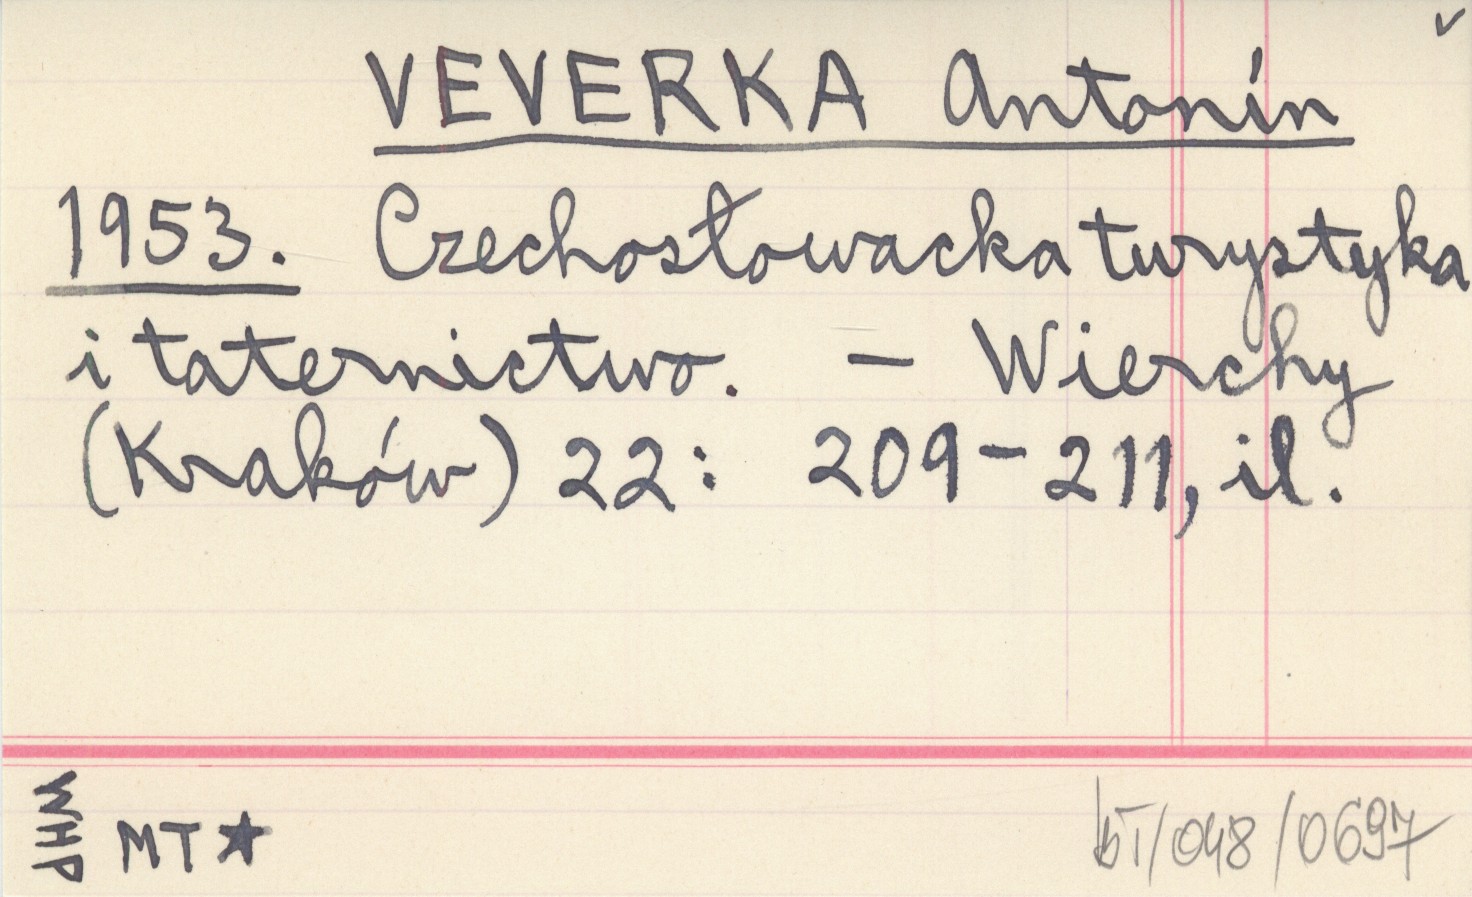 VEVERKA Antonín
1953. Czechosłowacka turystyka
i taternictwo. — Wierchy
(Kraków) 22: 209-211, il.
WHP
MT★
bT/048/0697